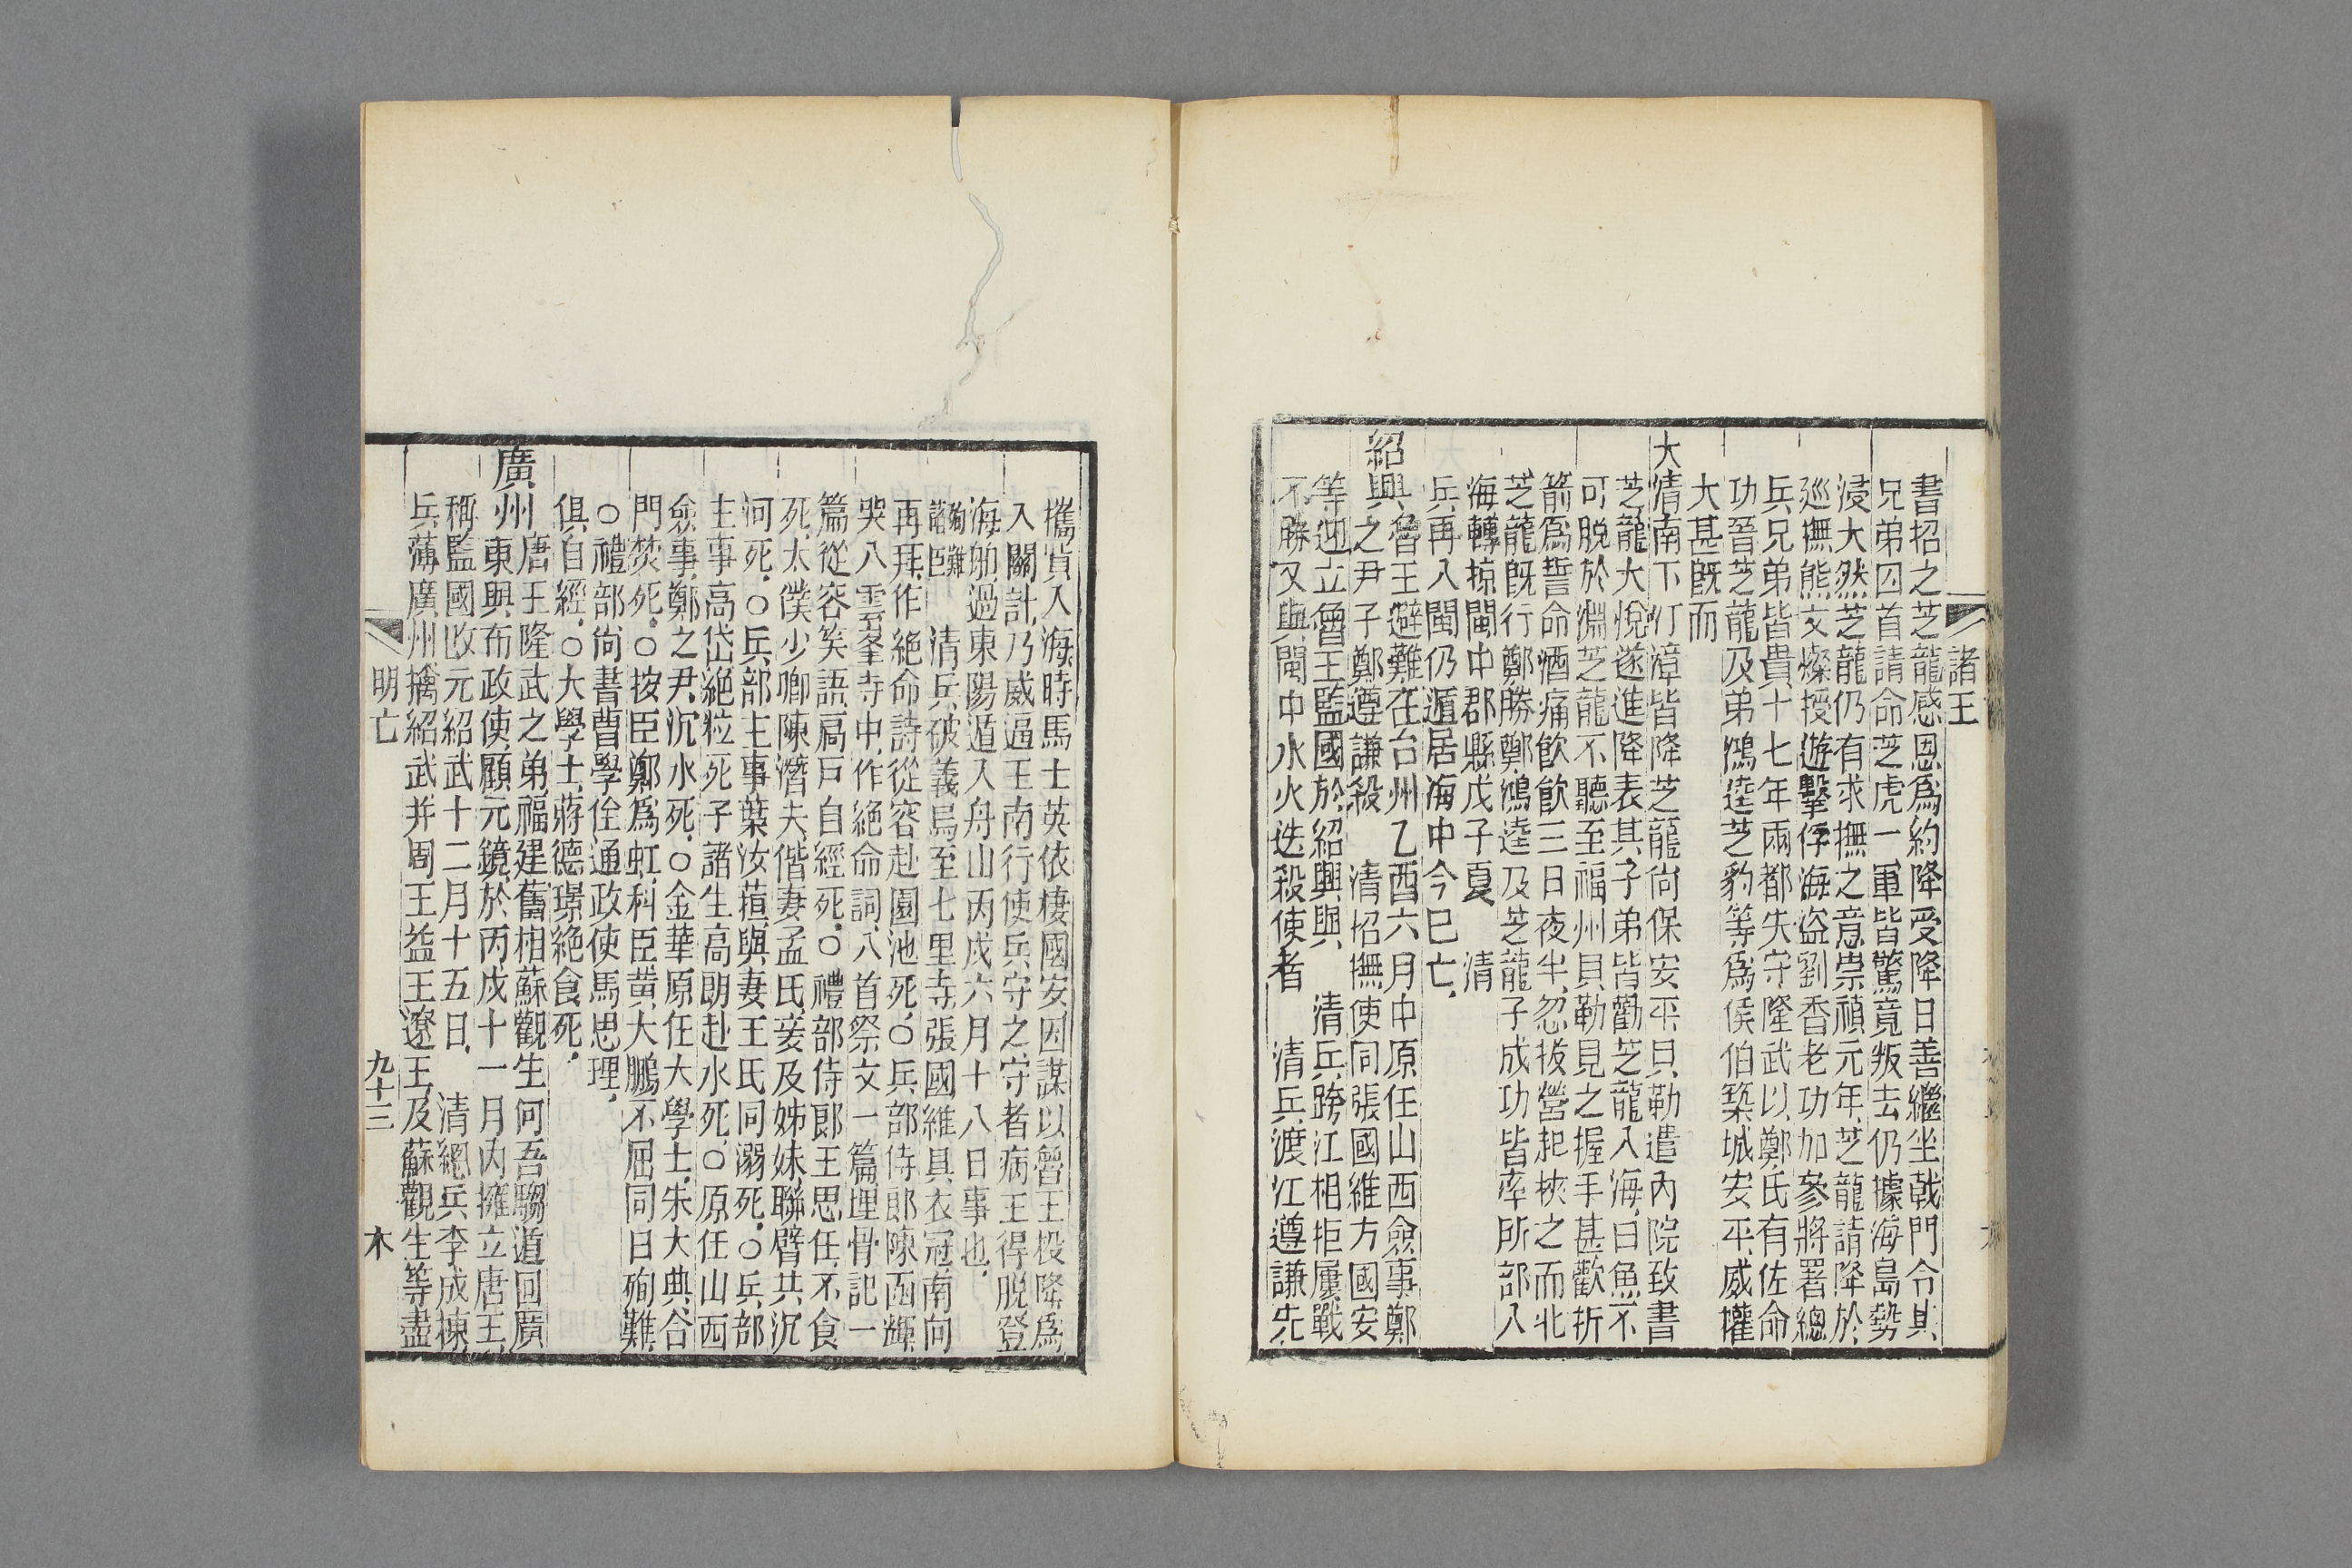 諸王
書招之芝龍感恩爲約降受降日善繼坐戟門令其
兄弟囚首請命芝虎一軍皆驚竟叛去仍據海島勢
浸大然芝龍仍有求撫之意崇禎元年芝龍請降於
廵撫熊文燦授遊擊俘海盗劉香老功加參將署總
兵兄弟皆貴十七年兩都失守隆武以鄭氏有佐命
功晉芝龍及弟鴻逵芝豹等爲侯伯築城安平威權
大甚旣而
大清南下汀漳皆降芝龍尙保安平貝勒遣內院致書
芝龍大悅遂進降表其子弟皆勸芝龍入海曰魚不
可脫於淵芝龍不聽至福州貝勒見之握手甚歡折
箭爲誓命酒痛飮飮三日夜半忽拔營起挾之而北
芝龍旣行鄭勝鄭鴻逵及芝龍子成功皆率所部入
海轉掠閩中郡縣戊子夏　清
兵再入閩仍遁居海中今巳亡
紹興魯王避難在台州乙酉六月中原任山西僉事鄭
之尹子鄭遵謙殺　清招撫使同張國維方國安
等迎立魯王監國於紹興與　清兵跨江相拒屢戰
不勝又與閩中水火迭殺使者　清兵渡江遵謙先
攜貲入海時馬士英依棲國安因謀以魯王投降爲
入關計乃威逼王南行使兵守之守者病王得脫登
海舶過東陽遁入舟山丙戌六月十八日事也
殉難諸臣　清兵破義烏至七里寺張國維具衣冠南向
再拜作絕命詩從容赴園池死○兵部侍郎陳函輝
哭入雲峯寺中作絕命詞八首祭文一篇埋骨記一
篇從容笑語扃戸自經死○禮部侍郎王思任不食
死太僕少卿陳潛夫偕妻孟氏妾及姊妹聯臂共沉
河死○兵部主事葉汝䔄與妻王氏同溺死○兵部
主事高岱絕粒死子諸生高朗赴水死○原任山西
僉事鄭之尹沉水死○金華原任大學士朱大典合
門焚死○按臣鄭爲虹科臣黄大鵬不屈同日殉難
○禮部尙書曹學佺通政使馬思理
俱自經○大學士蔣德璟絕食死
廣州唐王隆武之弟福建舊相蘇觀生何吾騶遁回廣
東與布政使顧元鏡於丙戌十一月內擁立唐王
稱監國改元紹武十二月十五日　清總兵李成棟
兵薄廣州擒紹武并周王益王遼王及蘇觀生等盡
明亡　九十三　木